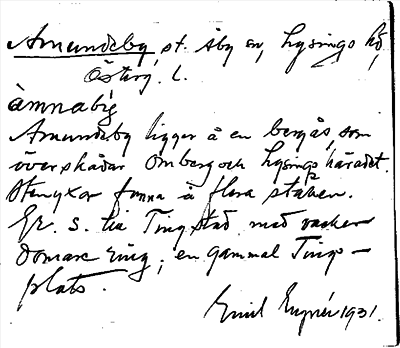 Amundeby, st. Åby sn, Lysings hd,
Österg. l.
ämnabÿ
Amundeby ligger å en bergås, som
överskådar Omberg och Lysings häradet.
Stenyxor funna å flera ställen.
Gr. S. till Tingstad med vacker
domarering; en gammal Tings-
plats.
Emil 1931.